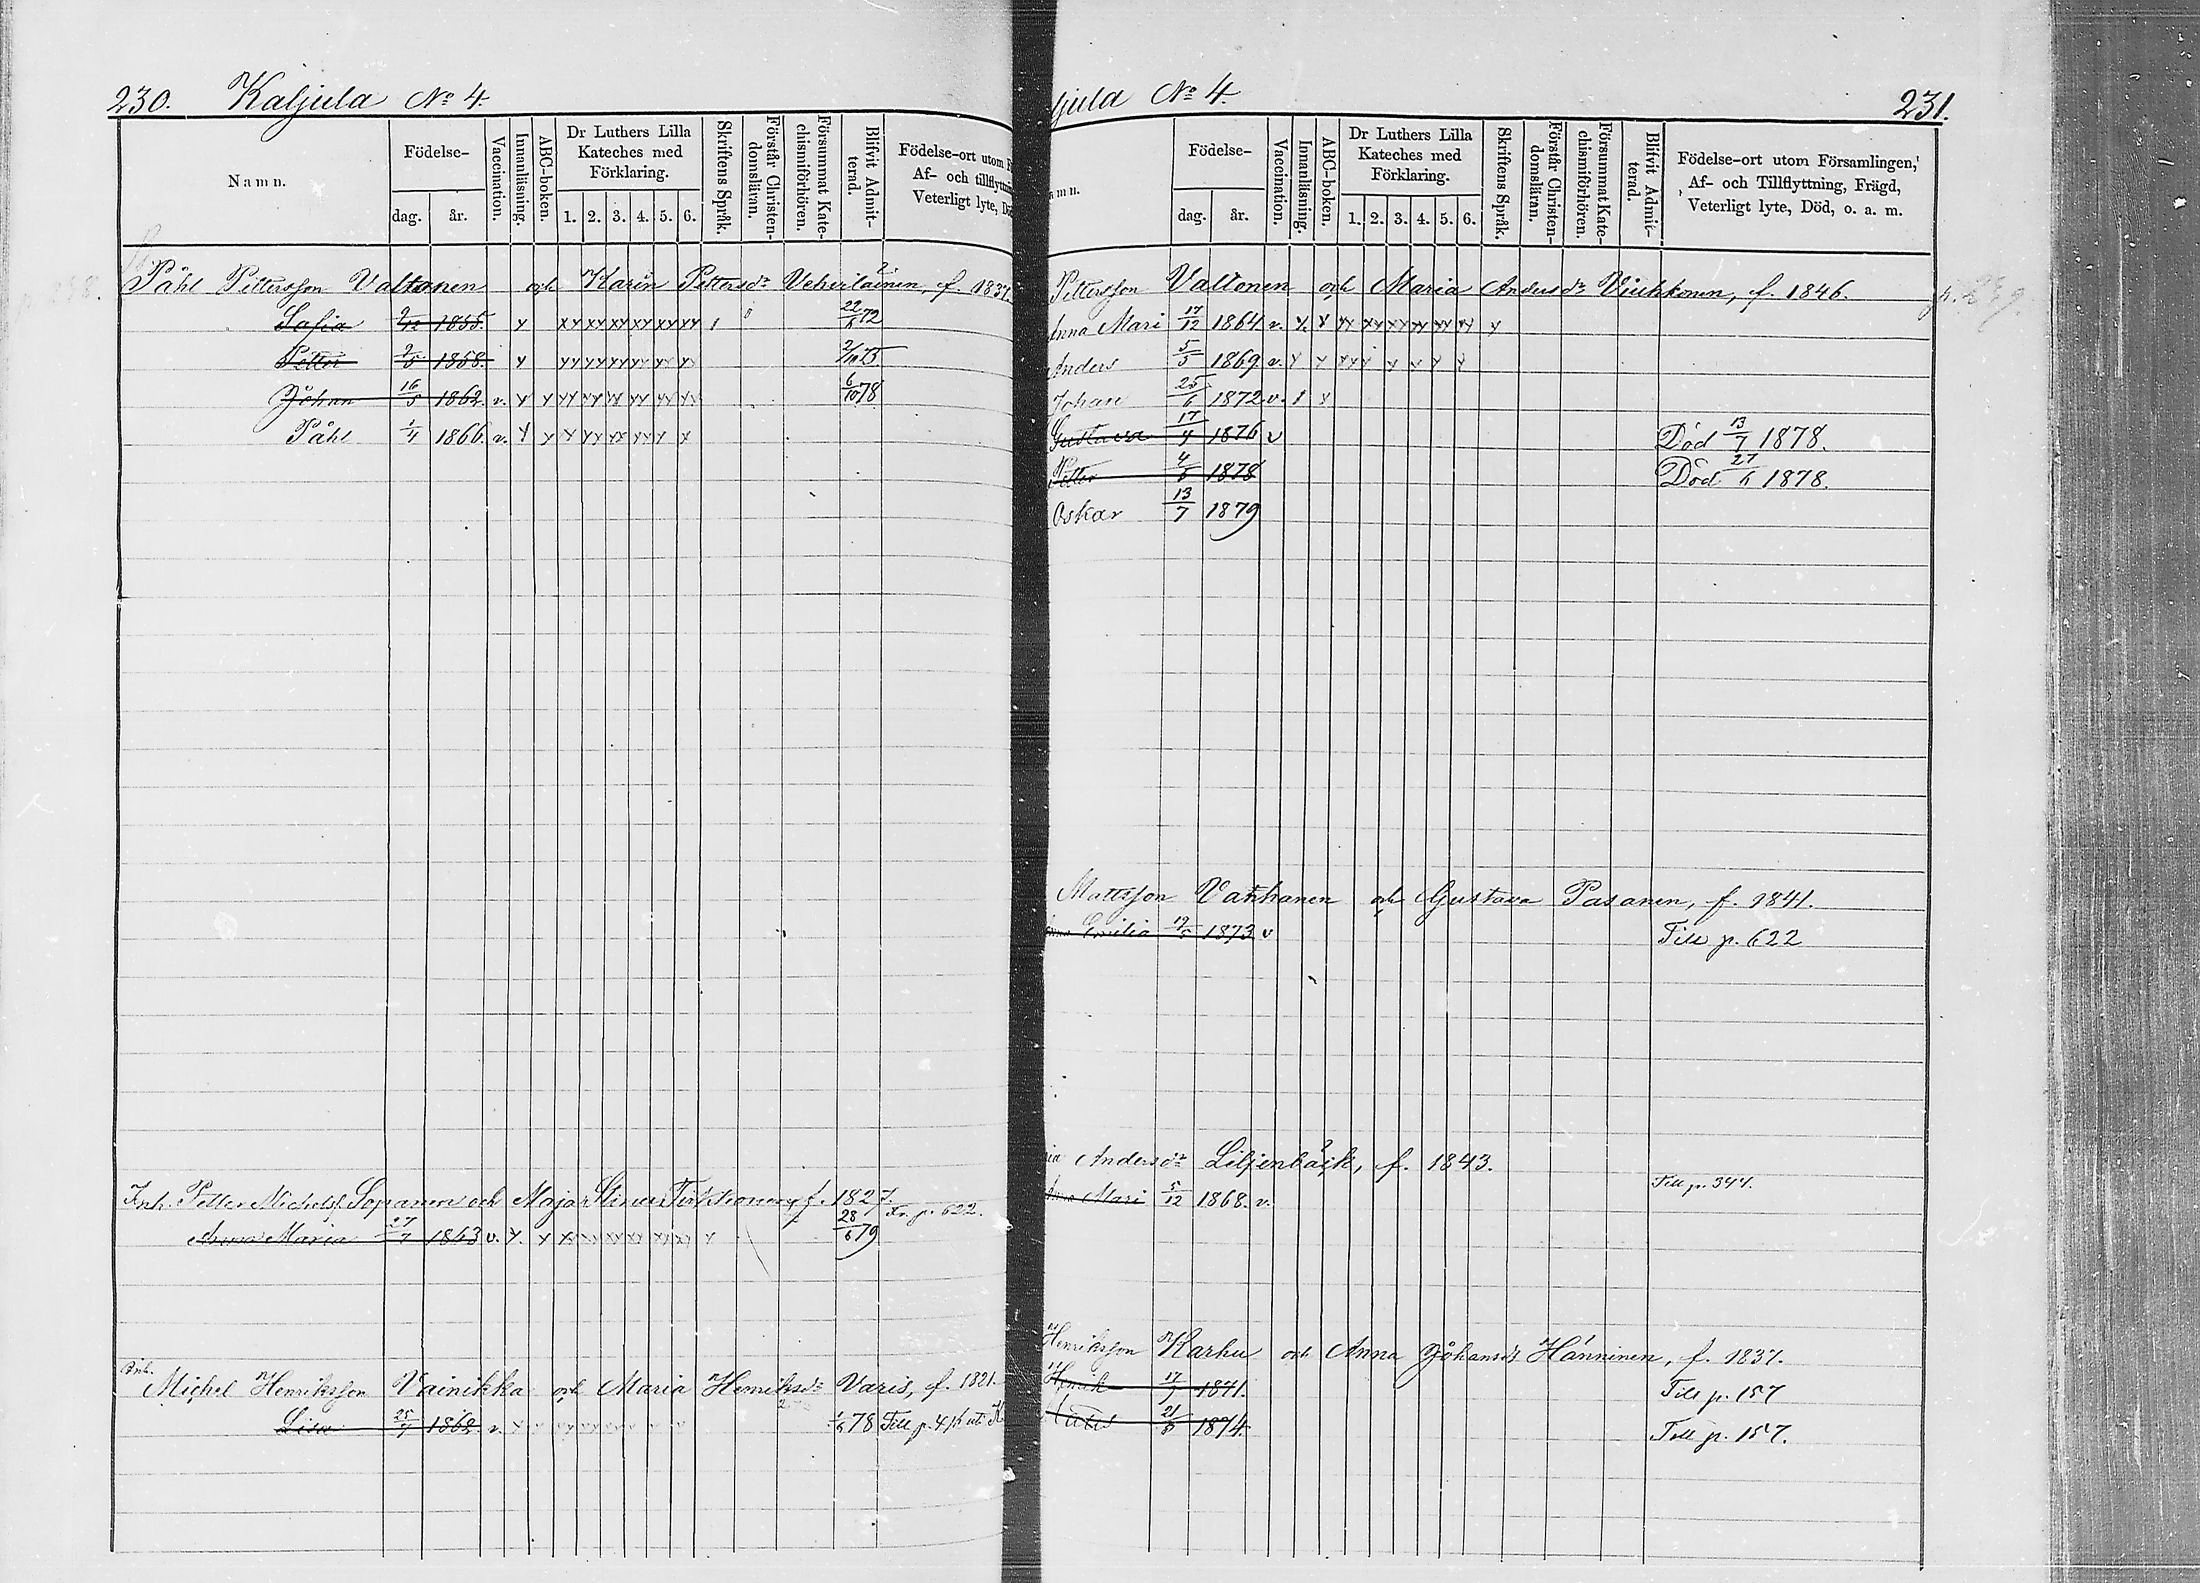 230. Kaljula No 4.
Namn.
Födelse-
dag. år.
Vaccination.
Innanläsning.
ABC-boken.
Dr Luthers Lilla
Kateches med
Förklaring.
1. 2. 3. 4. 5. 6.
Skriftens Språk.
Förstår Christen-
domsläran.
Försummat Kate-
chismiförhören.
Blifvit Admit-
terad.
Födelse-ort utom F
Af- och tillflyttnin
Veterligt lyte, Dö
Påhl Pettersson Valtonen och Karin Pettersdr Vehviläinen, f. 1837.
Sofia 9/12 1855. x xx xx xx xx xx xx 22/6 72
Petter 9/5 1858. x xx xx xx xx x x 2/10 75
Johan 16/5 1862. v. x x xx xx xx xx xx xx 6/10 78
Påhl 1/4 1866. v. x x x xx xx xx x x
Inh. Petter Michelss. Sopanen och Maja Stina Tirkkonen, f. 1827.
Fr. p. 622.
Anna Maria 27/7 1863 v. x. x 28/6 79
Inh.
Michel Henriksson Vainikka och Maria Henriksdr Varis, f. 1821.
Lisa 25/7 1862. v. 1/6 78 Till p.
jula No 4. 231.
mn.
Födelse-
dag. år.
Vaccination.
Innanläsning.
ABC-boken.
Dr Luthers Lilla
Kateches med
Förklaring.
1. 2. 3. 4. 5. 6.
Skriftens Språk.
Förstår Christen-
domsläran.
Försummat Kate-
chismiförhören.
Blifvit Admit-
terad.
Födelse-ort utom Församlingen,
Af- och Tillflyttning, Frägd,
Veterligt lyte, Död, o. a. m.
Pettersson Valtonen och Maria Andersdr Viukkonen, f. 1846. p. 239.
Anna Mari 17/12 1864 v. x. x xx xx xx xx xx xx x
Anders 5/5 1869. v. x x xx x x x x x
Johan 25/6 1872. v. x x
Gustava 17/4 1876 v Död 13/7 1878.
Petter 4/5 1878 Död 27/6 1878.
Oskar 13/7 1879
Mattsson Vanhanen och Gustava Pasanen, f. 1841.
Emilia 19/5 1873 v Till p. 622
ia Andersdr Liljenbäck, f. 1843.
Till p. 344.
Anna Mari 5/12 1868. v.
Henriksson Karhu och Anna Johansdr Hänninen, f. 1837.
Henrik 17/1 1871. Till p. 157
21/8 1874. Till p. 157.